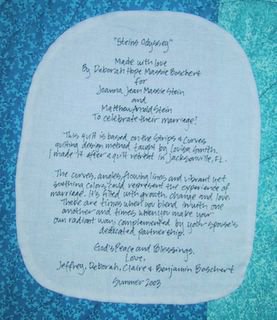 "Steins Odyssey"
Made with love
By Deborah Hope Massie Boschert
for
Jeanna Jean Massie Stein
and
Matthew Arnold Stein
To celebrate their marriage!
This quilt is based on the Strips & Curves
quilting design method taught by Louisa Smith.
I made it after a quilt retreat in Jacksonville, FL.
The curves, angles, flowing lines and vibrant yet
soothing colors could represent the experience of
marriage. It's filled with growth, change and love.
There are times when you blend in with one
another and times when you make your
own radiant way, complemented by your spouse's
dedicated partnership.
God's Peace and Blessings.
Love,
Jeffrey, Deborah, Claire & Benjamin Boschert
Summer 2003